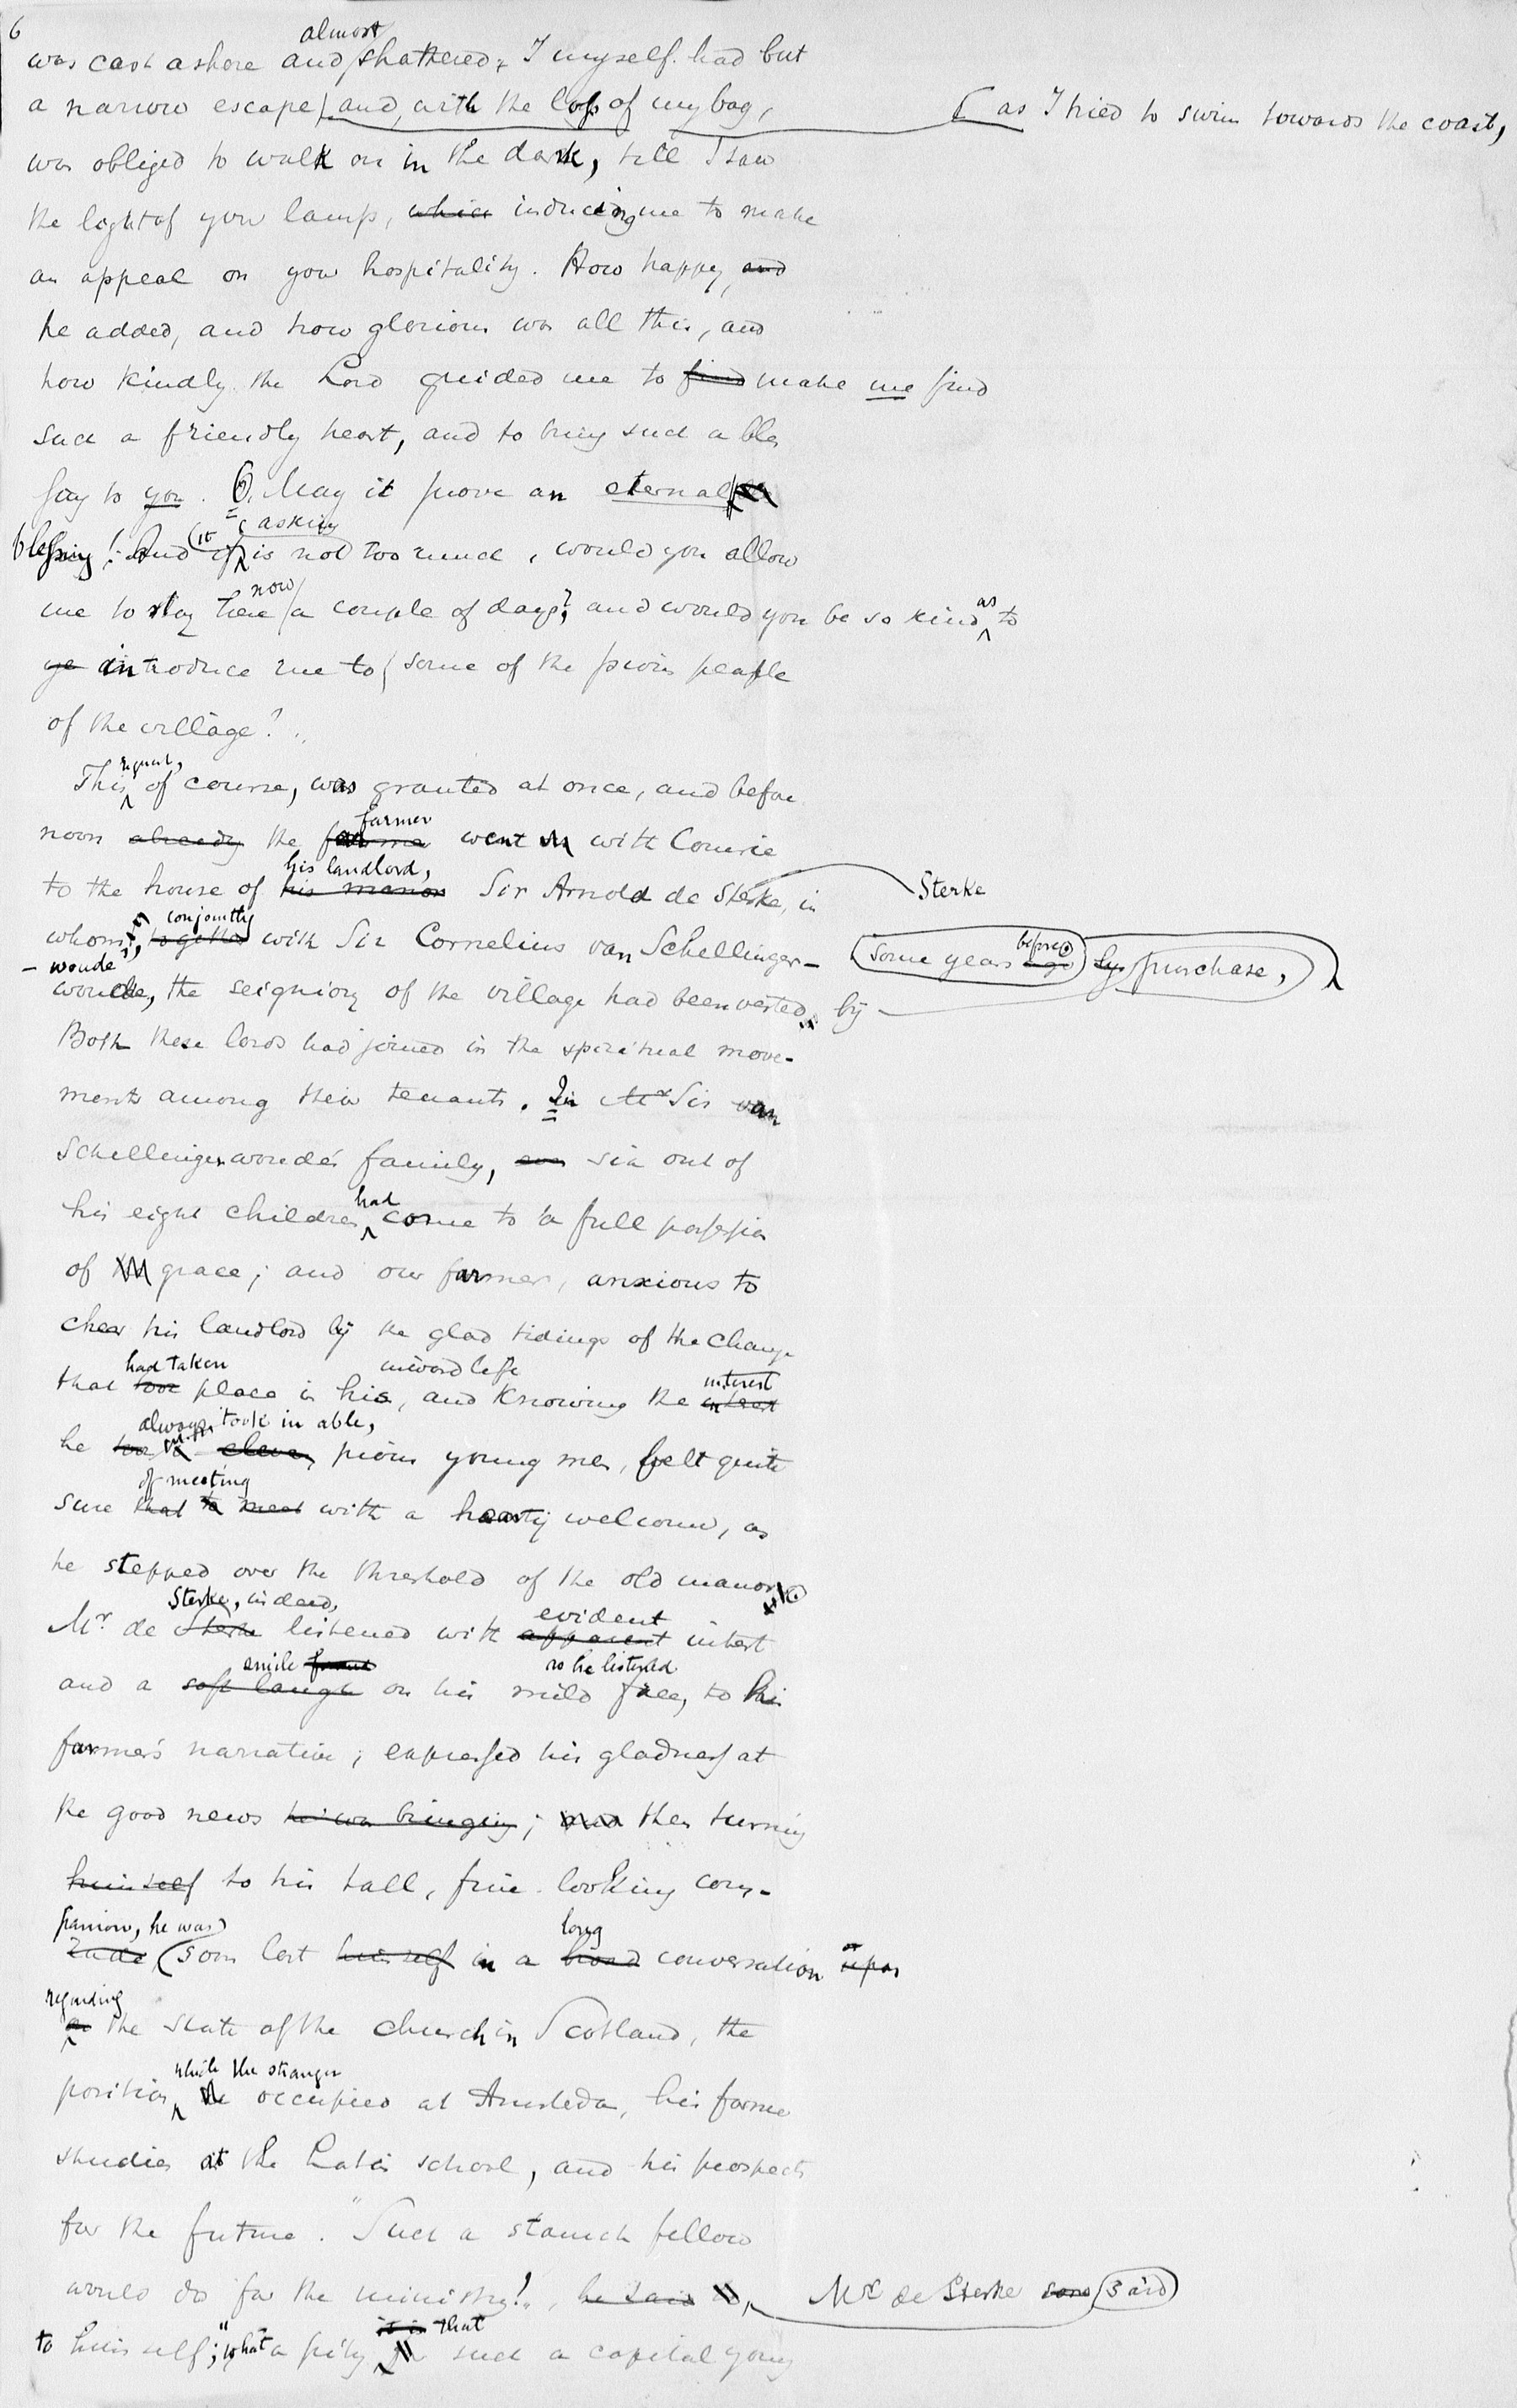 6
almost
was cast ashore and shattered, I myself had but
a narrow escape, and, with the loss of my bag, as I tried to swim towards the coast,
was obliged to walk on in the dark, till I saw
the light of your lamp, which inducing me to make
an appeal on your hospitality. How happy, and
he added, and how glorious was all this, and
how kindly the Lord guided me to find make me find
such a friendly heart, and to bring such a bles
sing to you. O, May it prove an eternal
it asking
blessing! And if is not too much, would you allow
now as
me to stay here a couple of days? and would you be so kind to
introduce me to some of the pious people
of the village?
request,
This of course, was granted at once, and before
farmer
noon already the farme went with Comrie
his landlord,
to the house of his manor Sir Arnold de Sterke, in Sterke
conjointly
whom, together with Sir Cornelius van Schellinger- some years before ago by purchase,
- woude
woude, the seigniory of the village had been vested by
Both these lords had joined in the spiritual move-
ment among their tenants. In Mr Sir van
Schellingerwoude's family, six out of
had
his eight children come to a full possession
of grace; and our farmer, anxious to
cheer his landlord by the glad tidings of the change
had taken inward life interest
that took place in his, and knowing the interest
always took in able,
he clever, pious young men, felt quite
of meeting
sure that to meet with a hearty welcome, as
he stepped over the threshold of the old manor
Sterke, indeed, evident
Mr. de Sterke listened with apparent interest
smile as he listened
and a soft laugh on his mild face, to his
farmer's narrative; expressed his gladness at
the good news he was bringing; and then turning
himself to his tall, fine looking com-
panion, he was long
soon lost himself in a broad conversation upon
regarding
the state of the church in Scotland, the
which the stranger
position he occupied at Amsterdam, his former
studies at the Latin school, and his prospects
for the future. "Such a staunch fellow
would do for the ministry!", he said Mr de Sterke said
it is that
to himself; "what a pity such a capital young